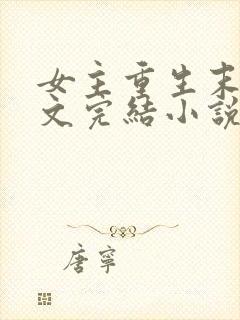 女主重生末
文完結小說
唐寧